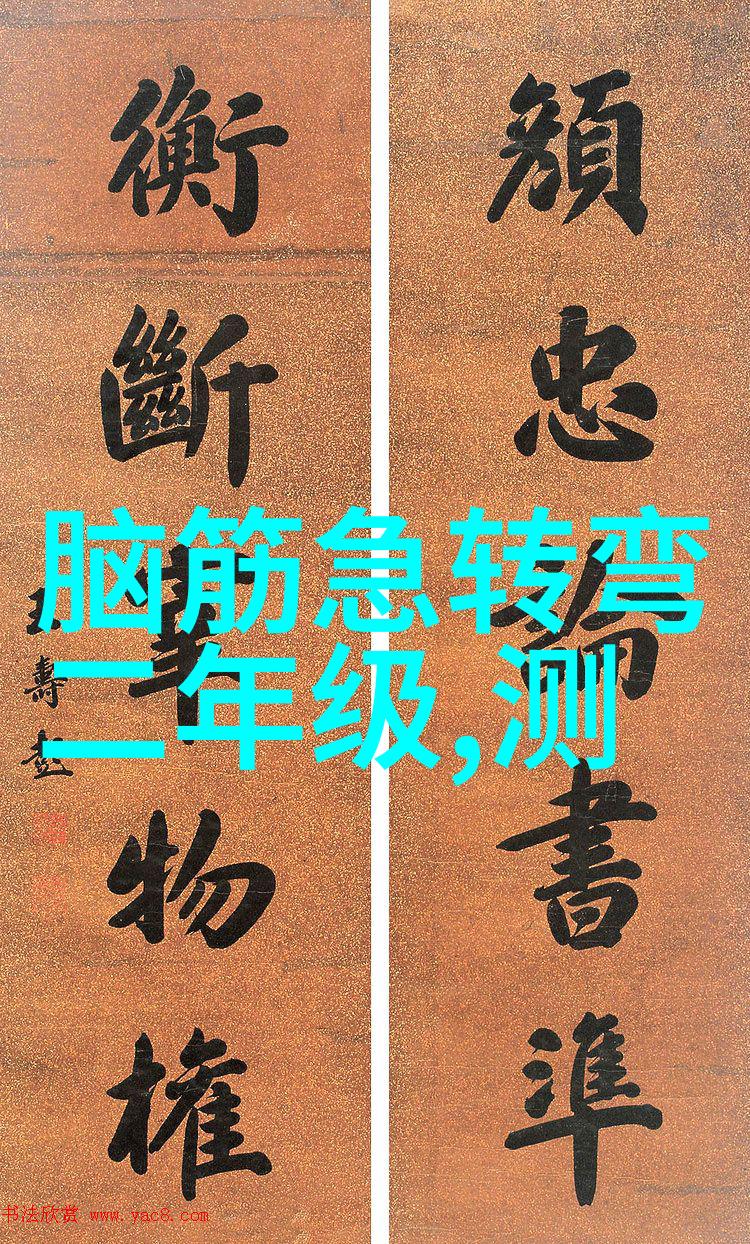 忠論書準
衡斷物權
王壽彭
脑筋急转弯
二年级,测
书法欣赏 www.yac8.com